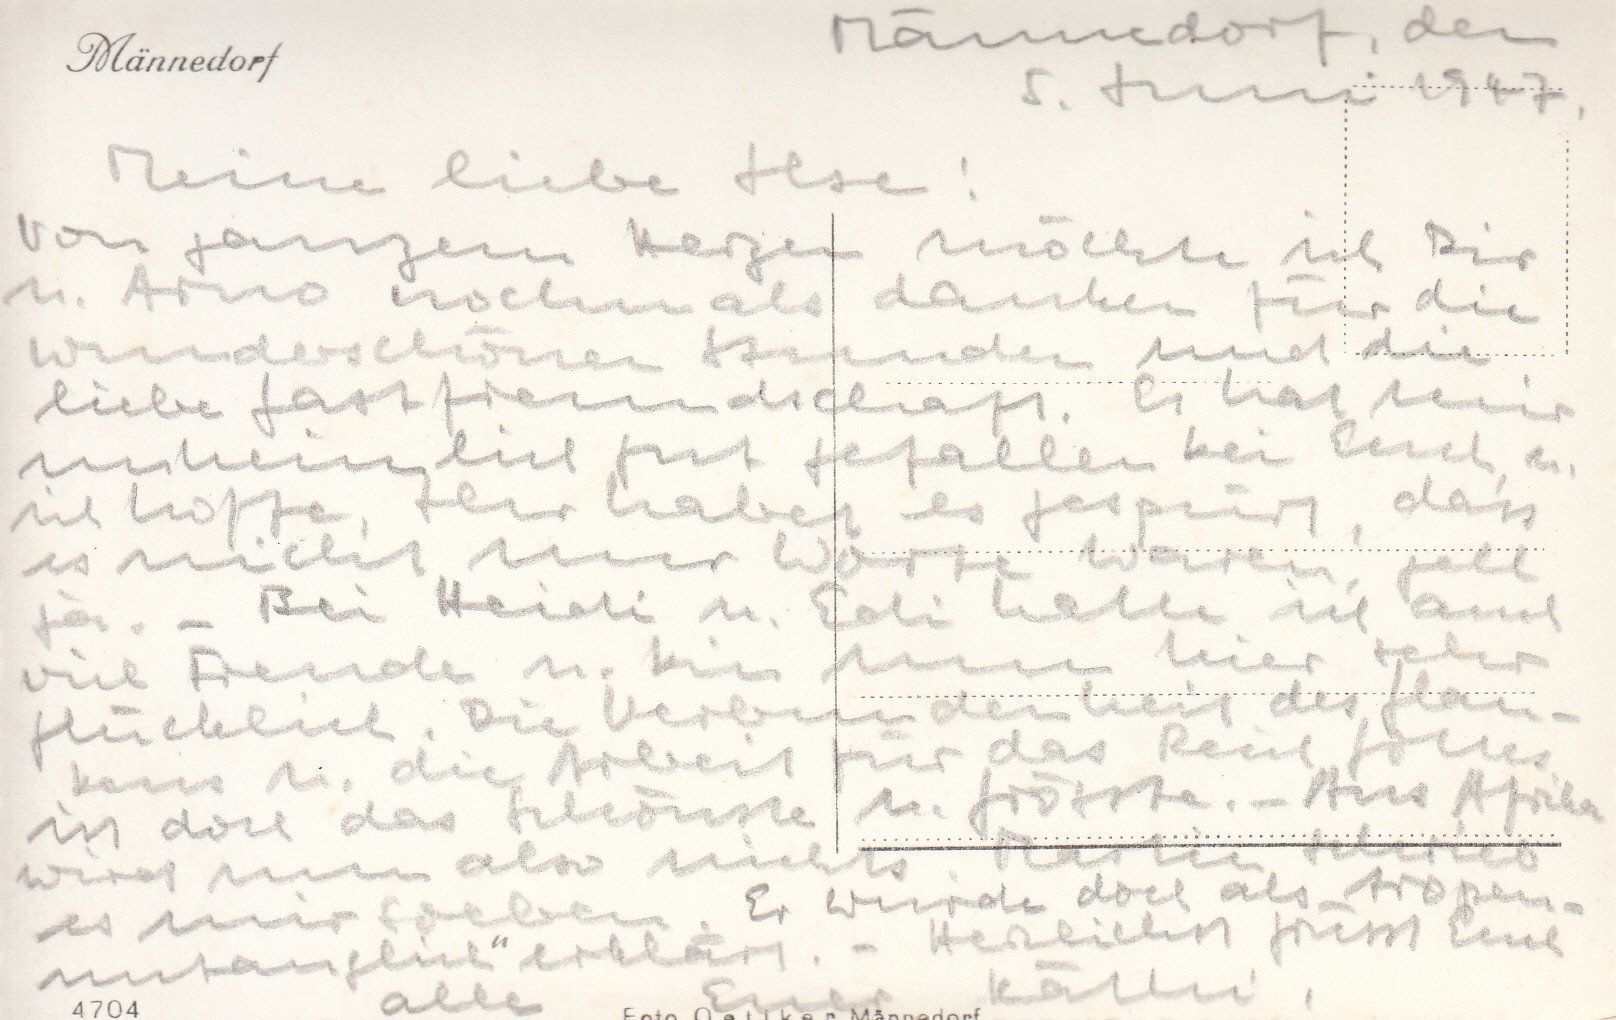 Männedorf
Männedorf, den
5. Juni 1947.
Meine liebe Ilse!
Von ganzem Herzen möchte ich Dir
u. Arno nochmals danken für die
wunderschönen Stunden und die
liebe Gastfreundschaft. Es hat mir
unheimlich gut gefallen bei Euch, u.
ich hoffe, Ihr habet es gespürt, dass
es nicht nur Worte waren, gell
ja. – Bei Heidi u. Edi hatte ich auch
viel Freude u. bin nun hier sehr
glücklich. Die Verbundenheit des Glau-
bens u. die Arbeit für das Reich Gottes
ist doch das Schönste u. Grösste. – Aus Afrika
wird nun also nichts. Martin schrieb
es mir soeben. Er wurde doch als tropen-
untauglich" erklärt. – Herzlichst grüsst Euch
alle Euer Käthi.
4704
Foto Oetiker Männedorf